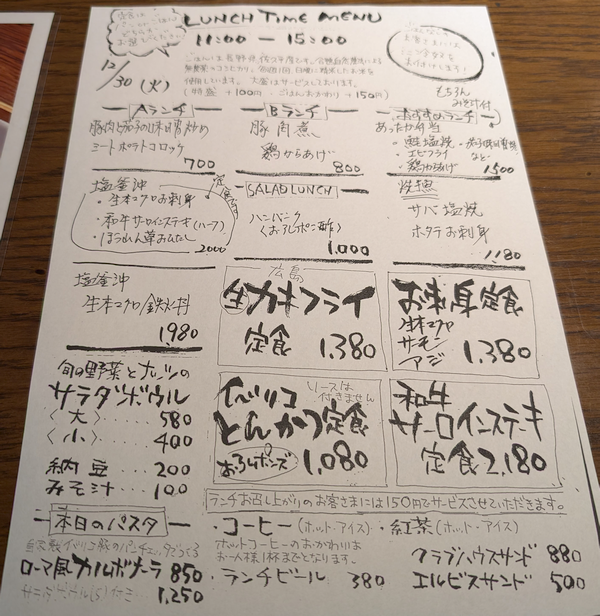 LUNCH TIME MENU
11:00 - 15:00
12/30 (火)
使用しています。大盛はサービスしております。
(特盛 +100円 ・ ごはんおかわり +150円)
もちろん
みそ汁付
Aランチ
豚肉と茄子の味噌炒め
ミートポテトコロッケ
700
Bランチ
豚角煮
鶏からあげ
800
おすすめランチ
あったか弁当
・鮭塩焼
・エビフライ
など
鶏からあげ
1500
塩釜沖
・生本マグロお刺身
・和牛サーロインステーキ(ハーフ)
・ほうれん草おひたし
2000
SALAD LUNCH
ハンバーグ
(おろしポン酢)
1,000
焼魚
サバ塩焼
ホタテお刺身
1180
塩釜沖
生本マグロ鉄火丼
1980
広島
生カキフライ
定食 1,380
お刺身定食
生本マグロ
サーモン
アジ
1,380
旬の野菜とナッツの
サラダボウル
〈大〉‥‥‥580
〈小〉‥‥‥400
納豆‥‥‥200
みそ汁‥‥‥100
イベリコ
ソースは
付きません
とんかつ定食
おろしポンズ 1,080
和牛
サーロインステーキ
定食 2,180
ランチお召し上がりのお客さまには150円でサービスさせていただきます。
・コーヒー(ホット・アイス) ・紅茶(ホット・アイス)
ホットコーヒーのおかわりは
お一人様1杯までとなります。
・ランチビール 380
クラブハウスサンド 880
エルビスサンド 500
本日のパスタ
ローマ風カルボナーラ 850
サラダボウル(S)付き 1,250